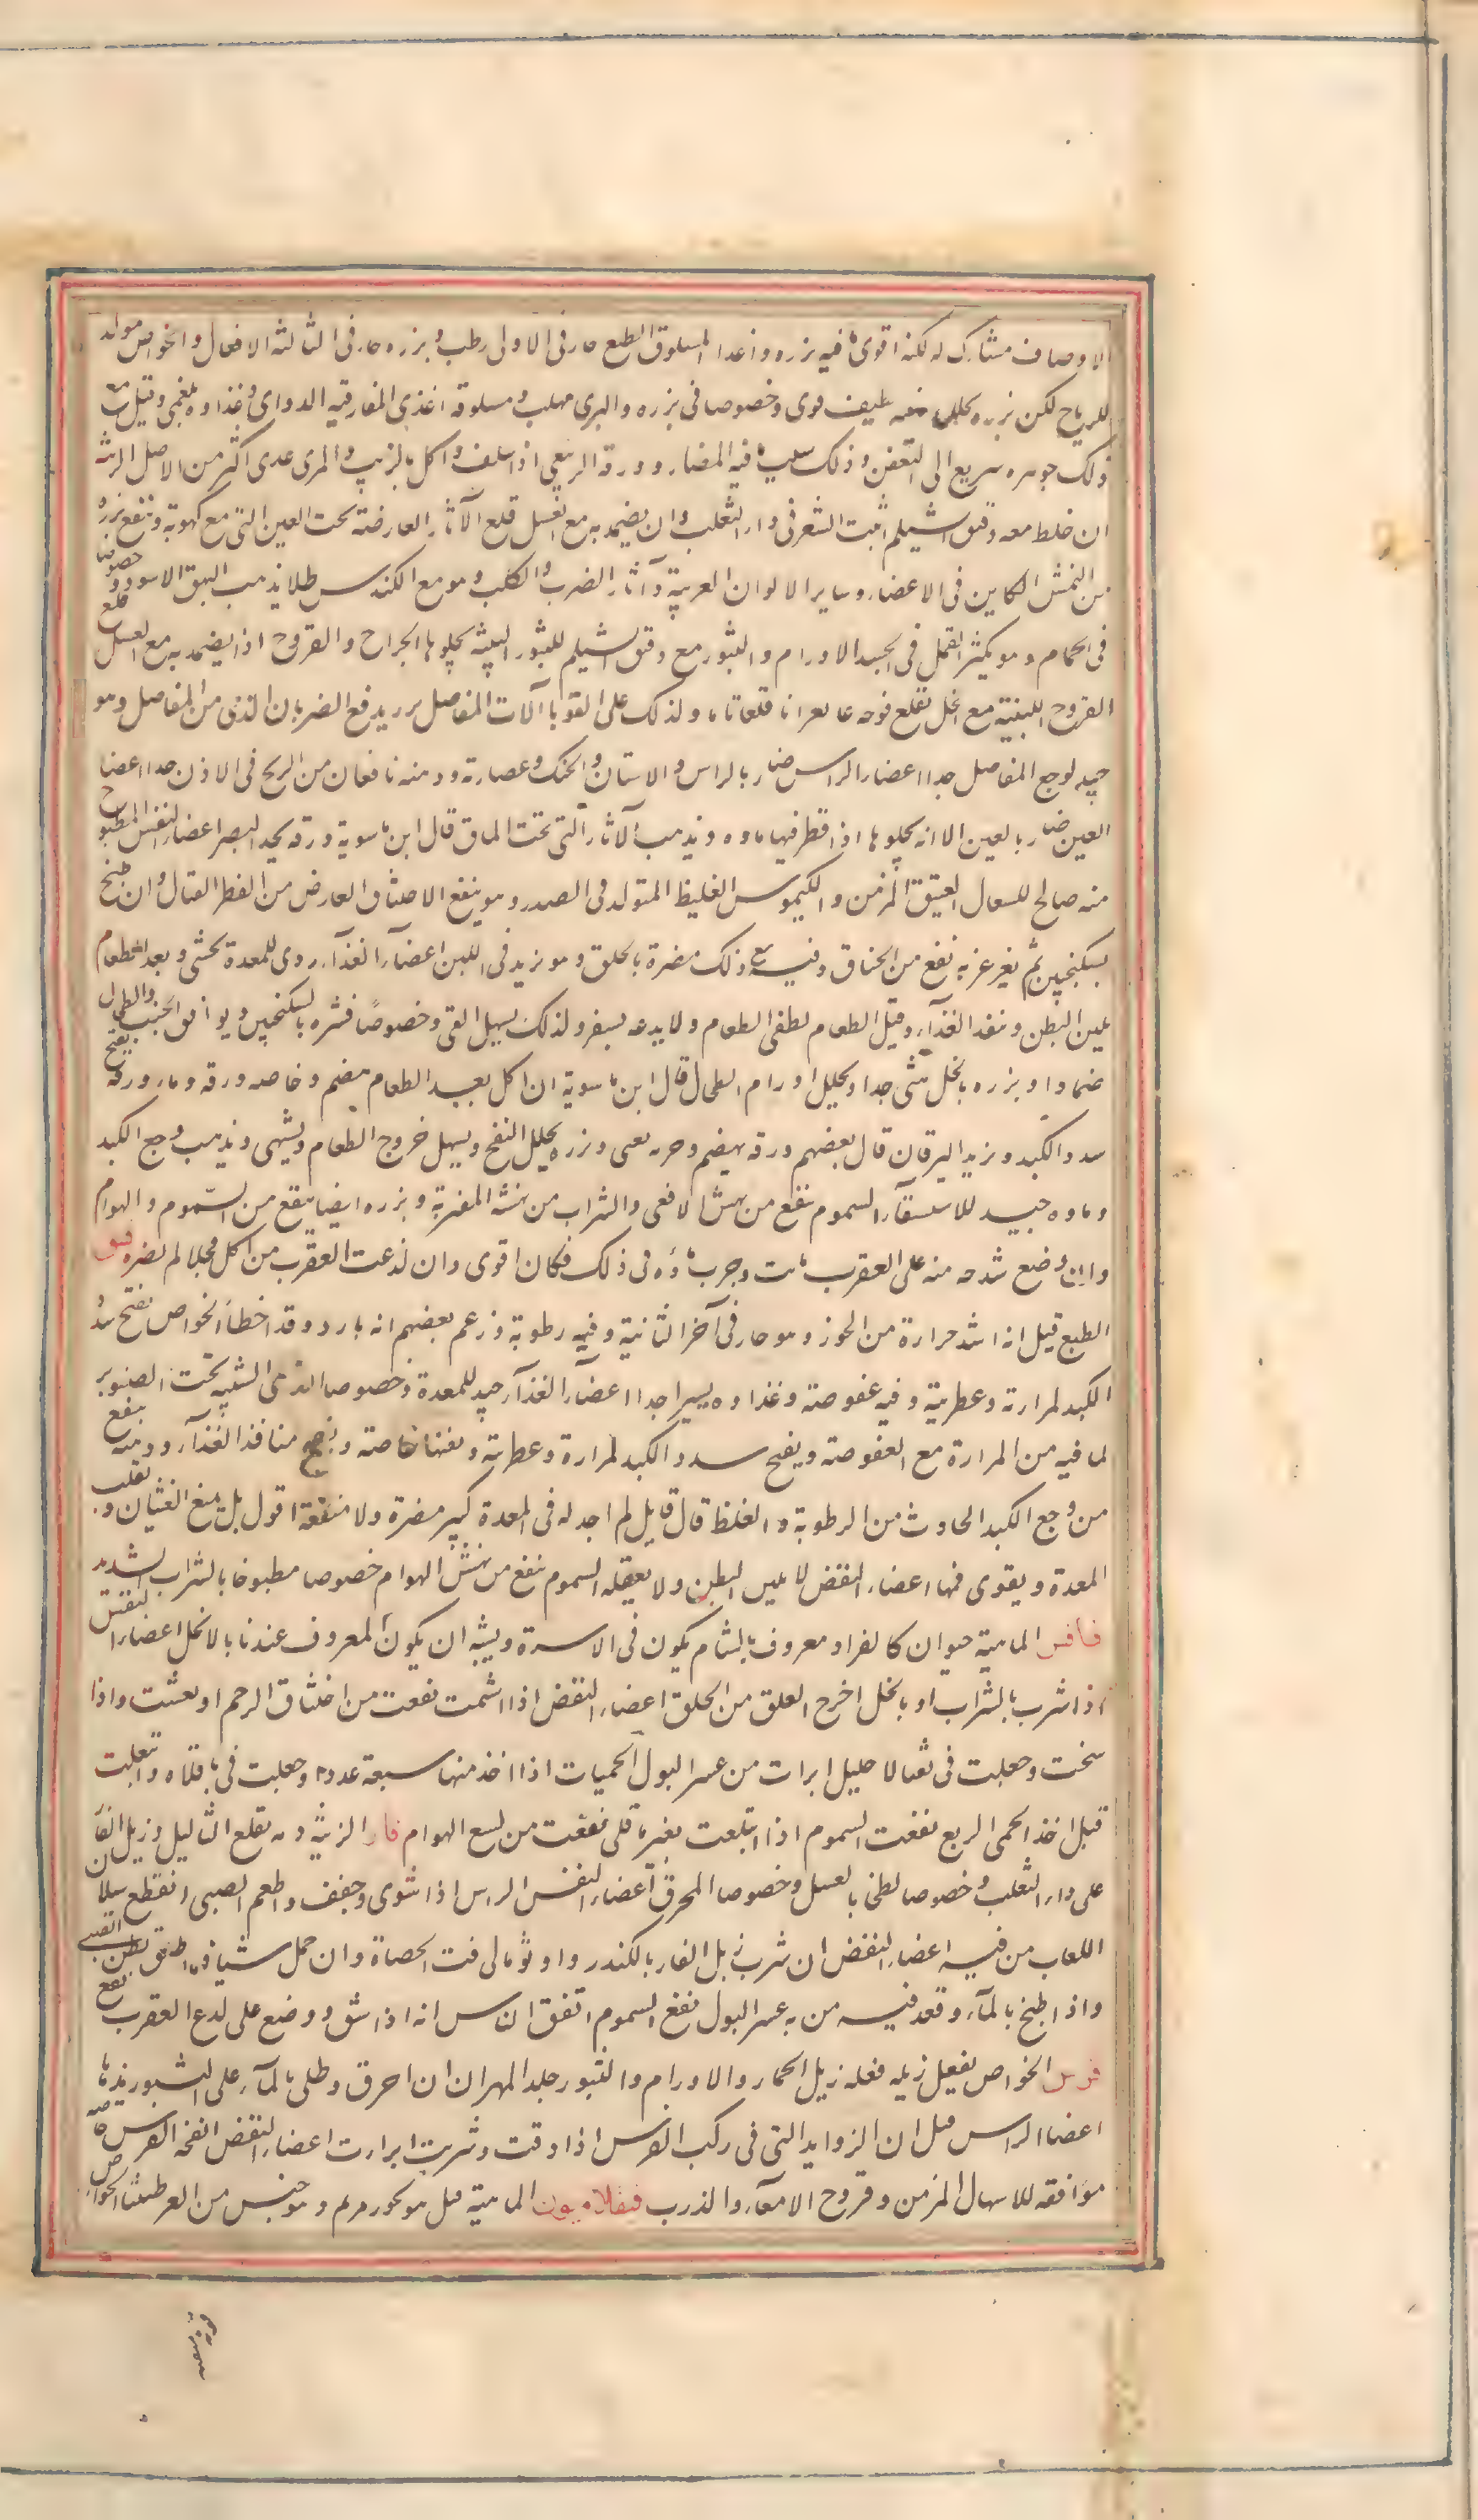 الاوصاف مشارك له لكنه اقوى ما فيه بزره واغذا المسلوق الطبع حار فى الاولى رطب وبزره حار فى الثالثة الافعال والخواص مولد
للرياح لكن بزره يحلل لطيف قوى وخصوصا فى بزره والبرى ملهب ومسلوقه اغذى المفارقته الدوائ وغذاوه بلغمى وقيل مع
ذلك جوهره سريع الى التعفن وذلك فيه المضار وورقه الربيعى اذا سلف واكل بالزيت والمرى غدى اكثر من الاصل الزينة
ان خلط معه دقيق الشيلم انبت الشعر فى داء الثعلب وان يضمد به مع العسل قلع الآثار العارضة تحت العين التى مع كهوبة وينفع بزره
من النمش الكاين فى الاعضاء وساير الالوان الغريبة وآثار الضرب والكلب وهو مع الكندس طلا يذهب البهق الاسود خصوصا
فى الحمام وهو يكثر القمل فى الجسد الاورام والبثور مع دقيق الشيلم للبثور اللبنية يجلوها الجراح والقروح اذا يضمد به مع العسل قلع
القروح اللبنية مع الخل يقلع قلعا تاما وكذلك على القوبا آلات المفاصل يزيد يرفع الضربان الذى من المفاصل وهو
جيد لوجع المفاصل جدا اعضاء الراس ضار بالراس والاسنان والحنك وعصارته ودهنه نافعان من الريح فى الاذن جدا اعضا
العين ضار بالعين الا انه يجلوها اذا قطر فيها ماوه ويذهب الآثار التى تحت الماق قال ابن ماسوية ورقه يحد البصر اعضاء النفس المطبوخ
منه صالح للسعال العتيق المزمن والكيموس الغليظ المتولد فى الصدر وهو ينفع الاختناق العارض من الفطر القتال وان طبخ
بسكنجبين ثم يغرغر به نفع من الخناق وفيه مع ذلك مضرة بالحلق وهو يزيد فى اللبن اعضاء الغذاء ردى للمعدة يجشى وبعد الطعام
يلين البطن وينفذ الغذاء وقبل الطعام يطفى الطعام ولا يدعه يستقر ولذلك يسهل القى وخصوصا قشره بالسكنجبين ويوافق الجنب والطحال
ضمادا وبزره بالخل يقى جدا ويحلل اورام الطحال قال ابن ماسوية ان اكل بعد الطعام هضم وخاصه ورقه وماء ورقه يفتح
سدد الكبد ويزيل اليرقان قال بعضهم ورقه يهضم وجرمه يعى وبزره يحلل النفخ ويسهل خروج الطعام ويشهى ويذهب وجع الكبد
وماوه جيد للاستسقاء السموم ينفع من نهش الافعى والشراب من نهشة المقرنة وبزره ايضا ينفع من السموم والهوام
وان وضع شدخه منه على العقرب مات وجرب ماؤه فى ذلك فكان اقوى وان لذعت العقرب من اكل فجلا لم يضره
الطبع قيل انه اشد حرارة من الجوز وهو حار فى آخر الثانية وفيه رطوبة وزعم بعضهم انه بارد وقد اخطأ الخواص يفتح سدد
الكبد لمرارته وعطريته وفيه عفوصة وغذاوه يسيرا جدا اعضاء الغذاء جيد للمعدة وخصوصا الذى الشبيه بحب الصنوبر
لما فيه من المرارة مع العفوصة ويفتح سدد الكبد لمرارته وعطريته خاصة منافذ الغذاء ودهنه ينفع
من وجع الكبد الحادث من الرطوبة والغلظ قال قايل لم اجد له فى المعدة كبير مضرة ولا منفعة اقول بل يمنع الغثيان و
المعدة ويقوى فمها اعضاء النفض لا يلين البطن ولا يعقله السموم ينفع من نهش الهوام خصوصا مطبوخا بالشراب الشديد
فسافس الماهية حيوان كالقراد معروف بالشام يكون فى الاسرة ويشبه ان يكون المعروف عندنا بالانجل اعضاء النفس
اذا شرب بالشراب او بالخل اخرج العلق من الحلق اعضاء النفض اذا اشمت نفعت من اختناق الرحم وانعشت واذا
سحقت وجعلت فى ثقب الاحليل ابرات من عسر البول الحميات اذا اخذ منها سبعة عددا وجعلت فى باقلاه وابتلعت
قبل اخذ الحمى الربع نفعت السموم اذا ابتلعت بغير باقلى نفعت من لسع الهوام فار الزينة دمه يقلع الثآليل وزبل الفار
على داء الثعلب وخصوصا لطخا بالعسل وخصوصا المحرق اعضاء النفس الراس اذا شوى وجفف واطعم الصبى انقطع سيلان
اللعاب من فيه اعضاء النفض ان شرب زبل الفار بالكندر واونومالى فتت الحصاة وان حمل شيافه اطلق بطن الصبى
واذا طبخ بالماء وقعد فيه من به عسر البول نفع السموم اتفق الناس انه اذا شق ووضع على لدع العقرب نفع
فرس الخواص يفعل زبله فعله زبل الحمار والاورام والبثور جلد المهر ان ان احرق وطلى بالماء على البثور يذيبها
اعضا الراس قيل ان الزوايد التى فى ركب الفرس اذا دقت وشربت ابرات اعضاء النفض انفحة الفرس خاصة
موافقه للاسهال المزمن وقروح الامعاء والذرب فيفلاميون الماهية قيل هو بخور مريم وهو جنس من العرطنيثا الخواص